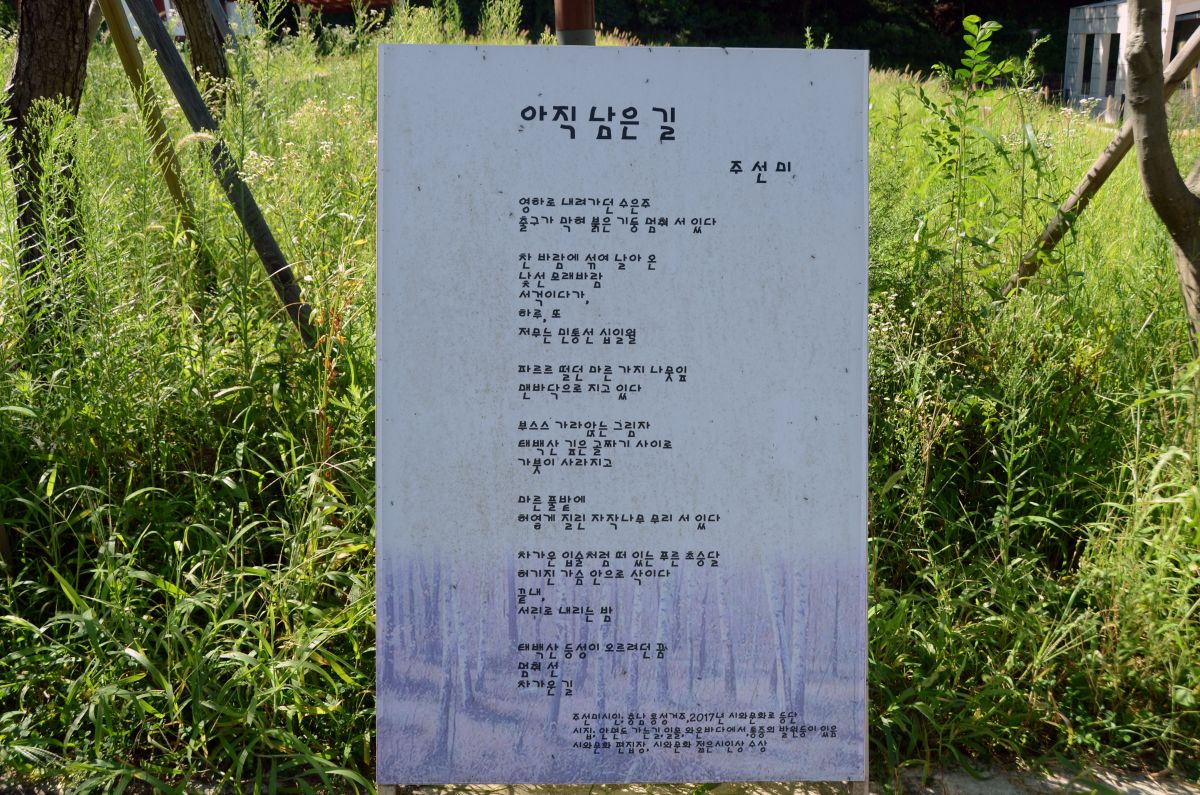 아직 남은 길
주선미
영하로 내려가던 수은주
출구가 막혀 붉은 기둥 멈춰 서 있다
찬 바람에 섞여 날아 온
낯선 모래바람
서걱이다가,
하루, 또
저무는 민통선 십일월
파르르 떨던 마른 가지 나뭇잎
맨바닥으로 지고 있다
부스스 가라앉는 그림자
태백산 깊은 골짜기 사이로
가뭇이 사라지고
마른 풀밭에
허옇게 질린 자작나무 무리 서 있다
차가운 입술처럼 떠 있는 푸른 초승달
허기진 가슴 안으로 삭이다
끝내,
서리로 내리는 밤
태백산 등성이 오르려던 꿈
멈춰 선
차가운 길
주선미시인: 충남 홍성거주,2017년 시와문화로 등단
시집: 안면도 가는길,일몰, 와온바다에서,통증의 발원등이 있음
시와문화 편집장, 시와문화 젊은시인상 수상